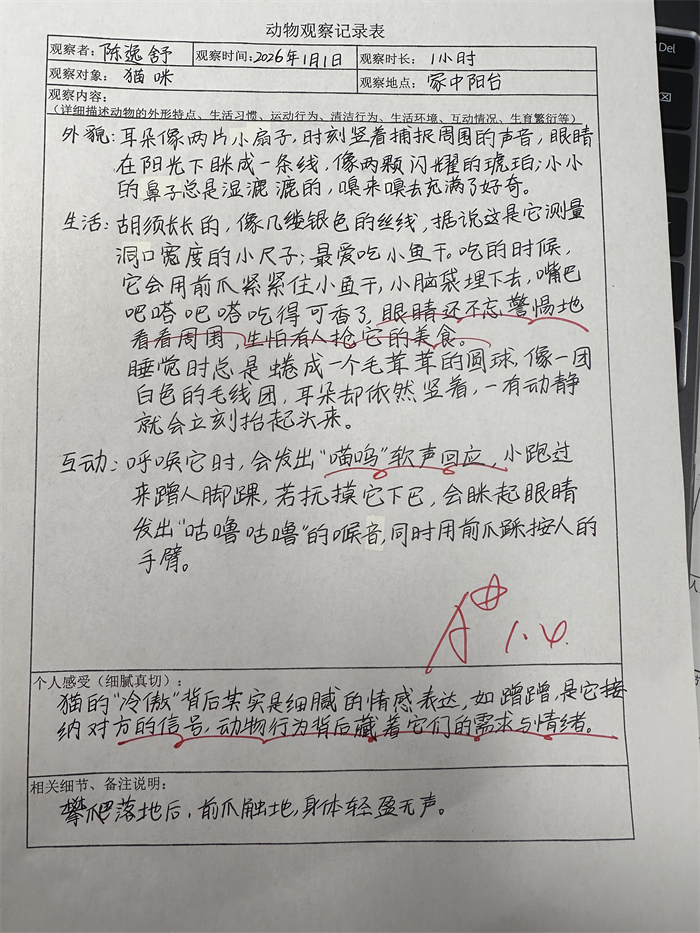 动物观察记录表
观察者: 陈逸舒 观察时间: 2026年1月1日 观察时长: 1小时
观察对象: 猫咪 观察地点: 家中阳台
观察内容:
(详细描述动物的外形特点、生活习惯、运动行为、清洁行为、生活环境、互动情况、生育繁衍等)
外貌: 耳朵像两片小扇子,时刻竖着捕捉周围的声音,眼睛
在阳光下眯成一条线,像两颗闪耀的琥珀;小小
的鼻子总是湿漉漉的,嗅来嗅去充满了好奇。
生活: 胡须长长的,像几缕银色的丝线,据说这是它测量
洞口宽度的小尺子;最爱吃小鱼干。吃的时候,
它会用前爪紧紧住小鱼干,小脑袋埋下去,嘴巴
吧嗒吧嗒吃得可香了,眼睛还不忘警惕地
看看周围,生怕有人抢它的美食。
睡觉时总是蜷成一个毛茸茸的圆球,像一团
白色的毛线团,耳朵却依然竖着,一有动静
就会立刻抬起头来。
互动: 呼唤它时,会发出“喵呜”软声回应,小跑过
来蹭人脚踝,若抚摸它下巴,会眯起眼睛
发出“咕噜咕噜”的喉音,同时用前爪踩按人的
手臂。
A⊕ 1.4.
个人感受(细腻真切):
猫的“冷傲”背后其实是细腻的情感表达,如蹭蹭,是它接
纳对方的信号,动物行为背后藏着它们的需求与情绪。
相关细节、备注说明:
攀爬落地后,前爪触地,身体轻盈无声。
Del